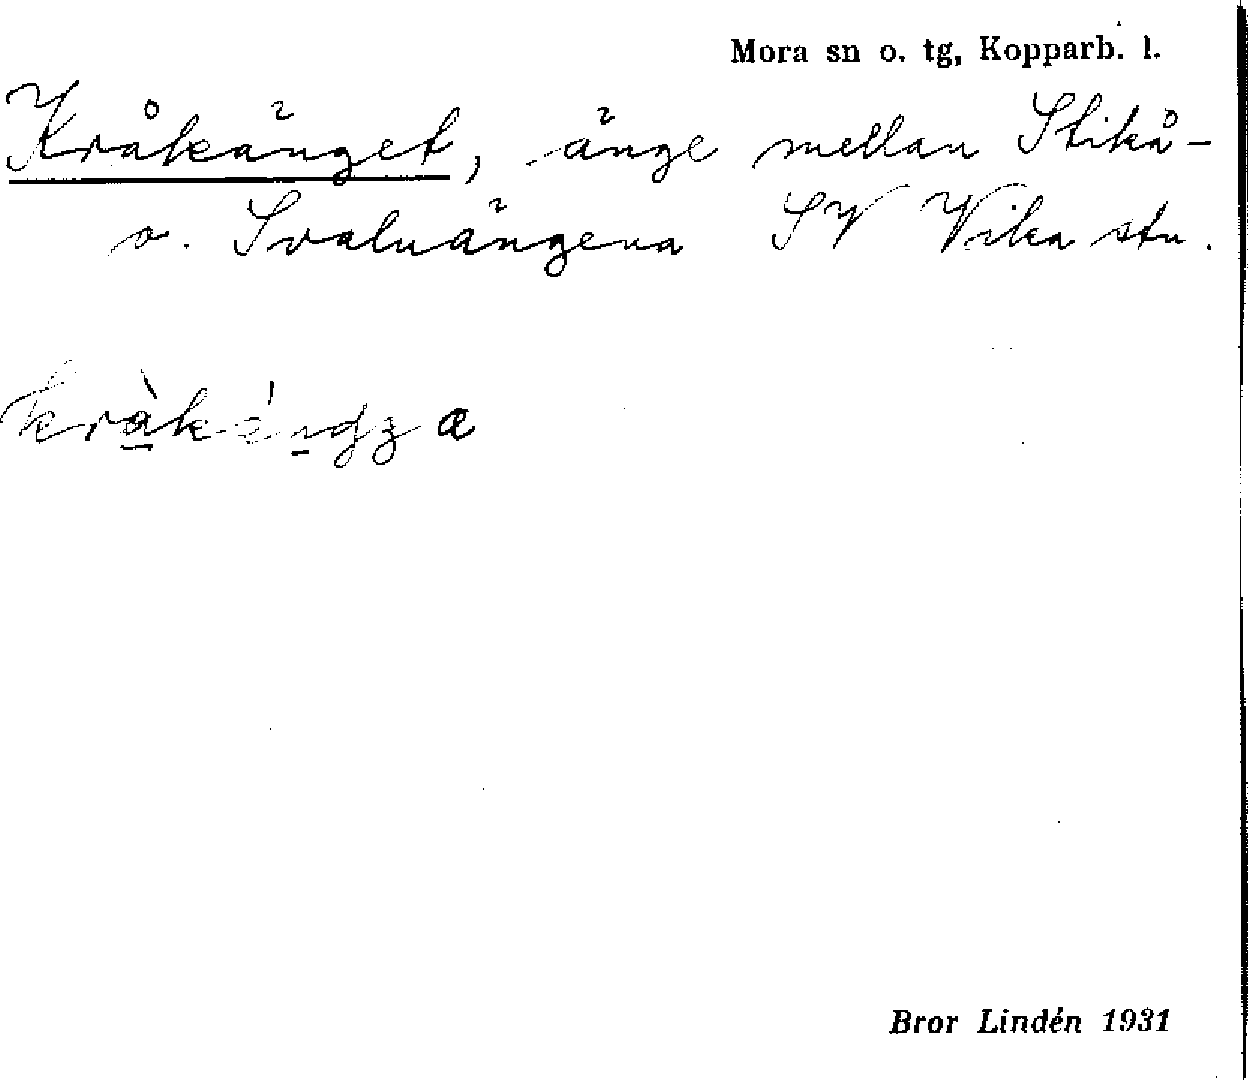 Mora sn o. tg, Kopparb. l.
Kråkänget, änge mellan Stikå-
o. Svaluängena SV Vika stn.
Bror Lindén 1931